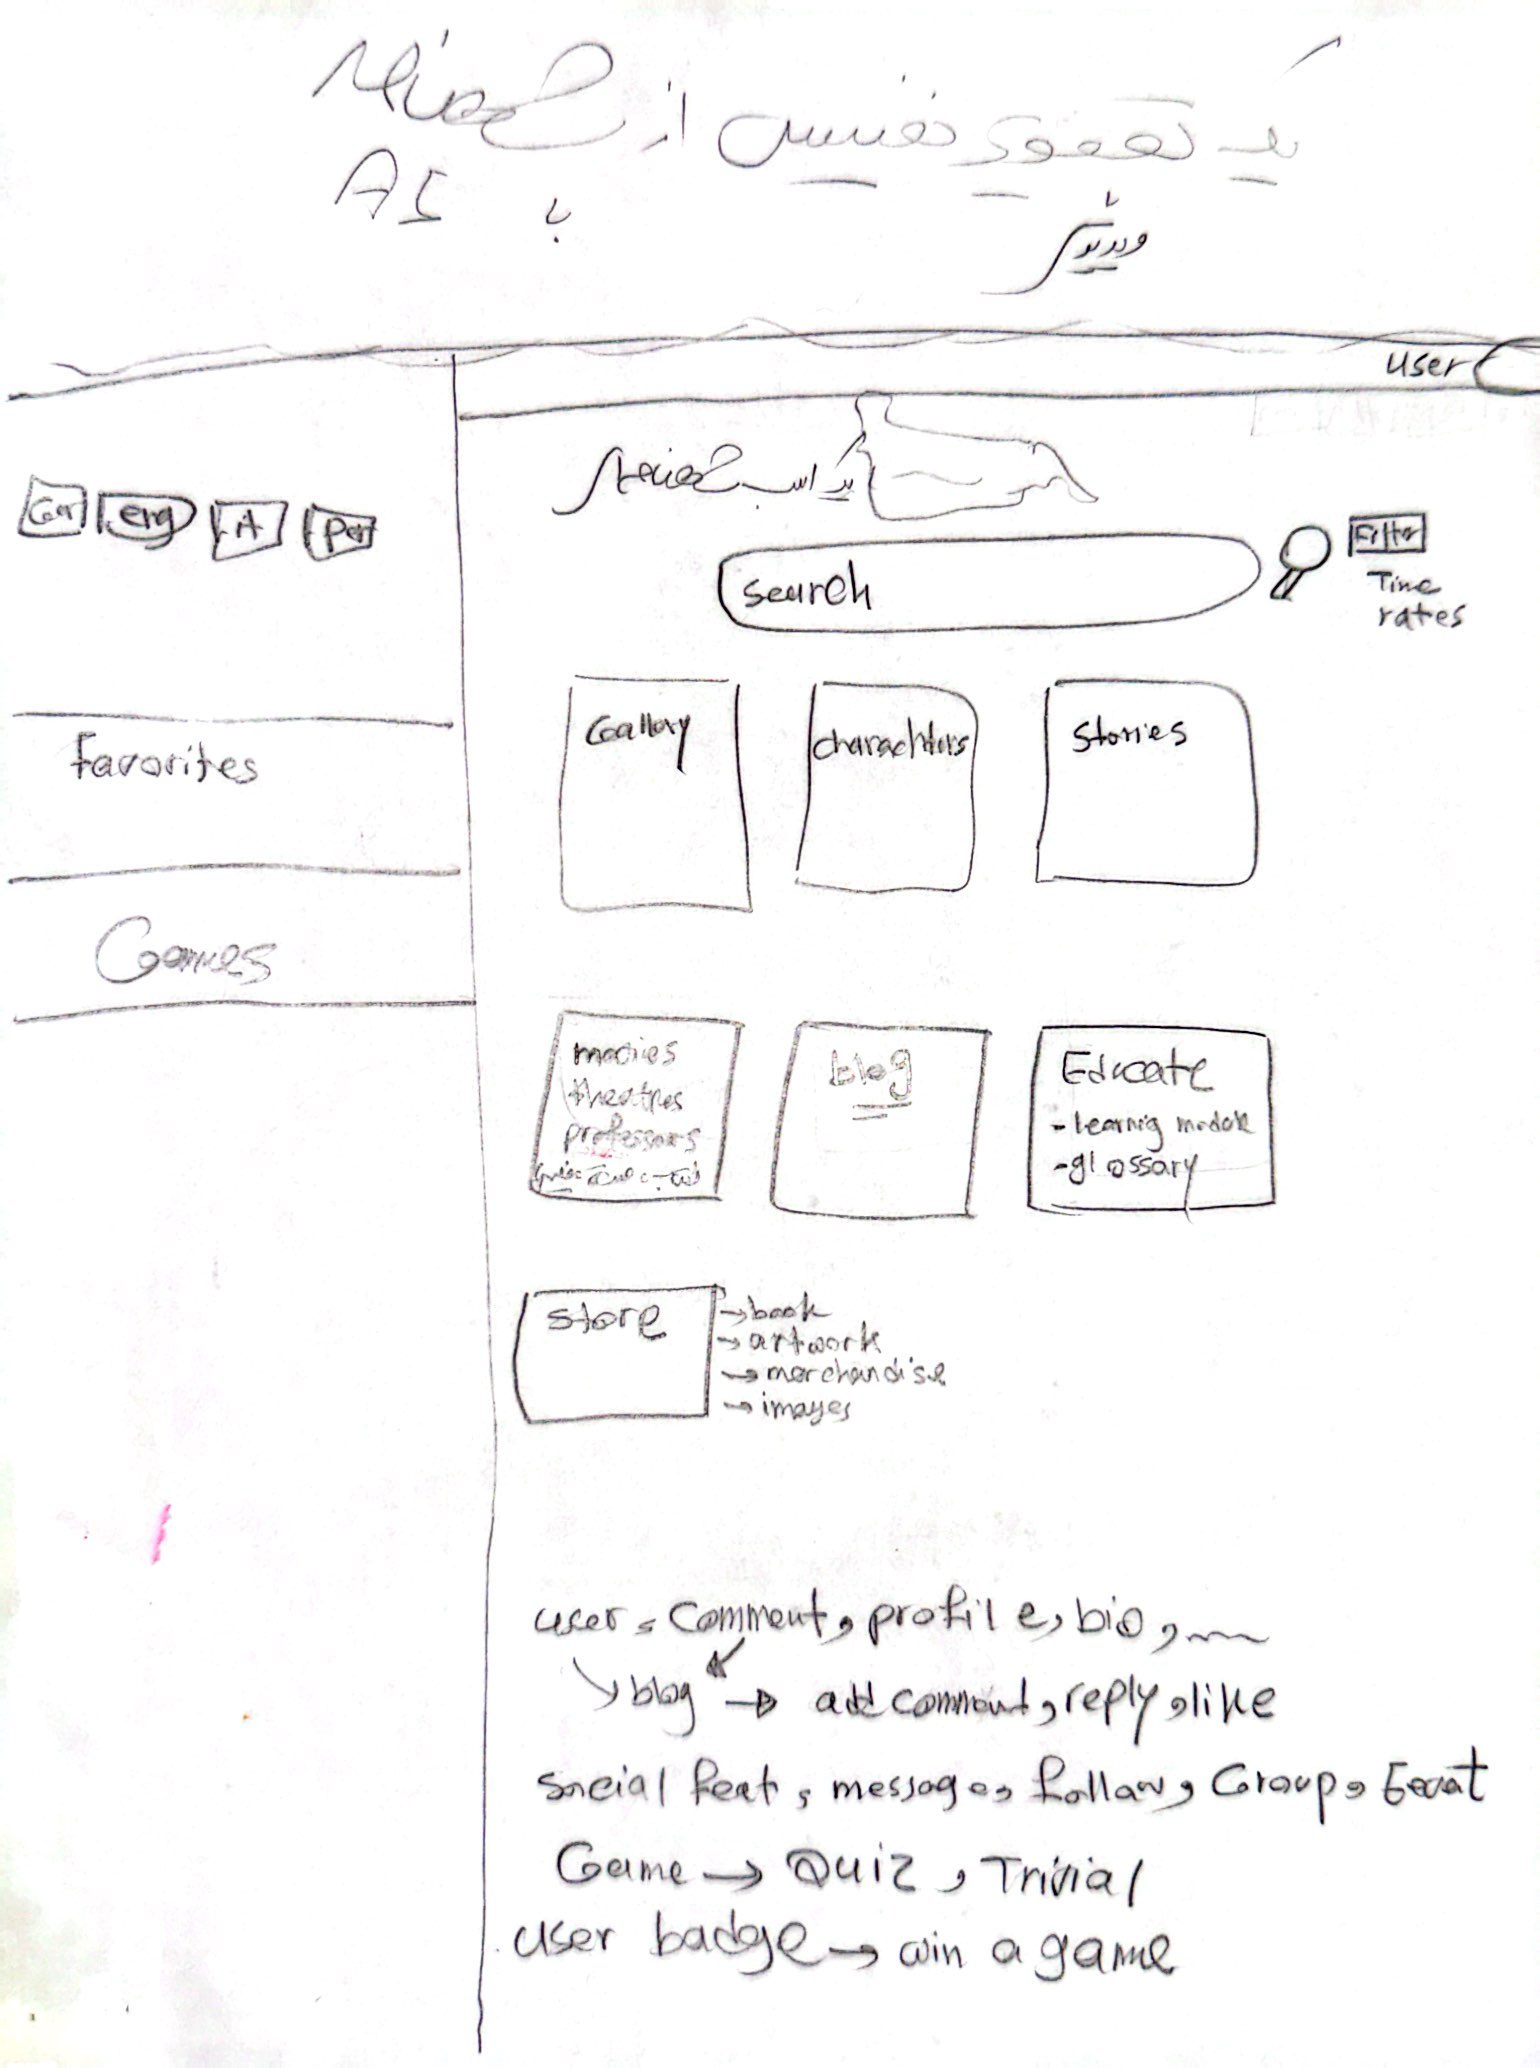 یک تصویر نفیس از شاهنامه
با AI
ویدیو
user
Ger eng it per
براساس شاهنامه
search
Filter
Time
rates
Favorites
Games
Gallery
charachters
stories
movies
theatres
professors
blog
Educate
- learnig module
- glossary
store
→ book
→ artwork
→ merchandise
→ images
user, comment, profile, bio,
blog → add comment, reply, like
social feat, message, follow, Group, Event
Game → Quiz, Trivial
user badge → win a game